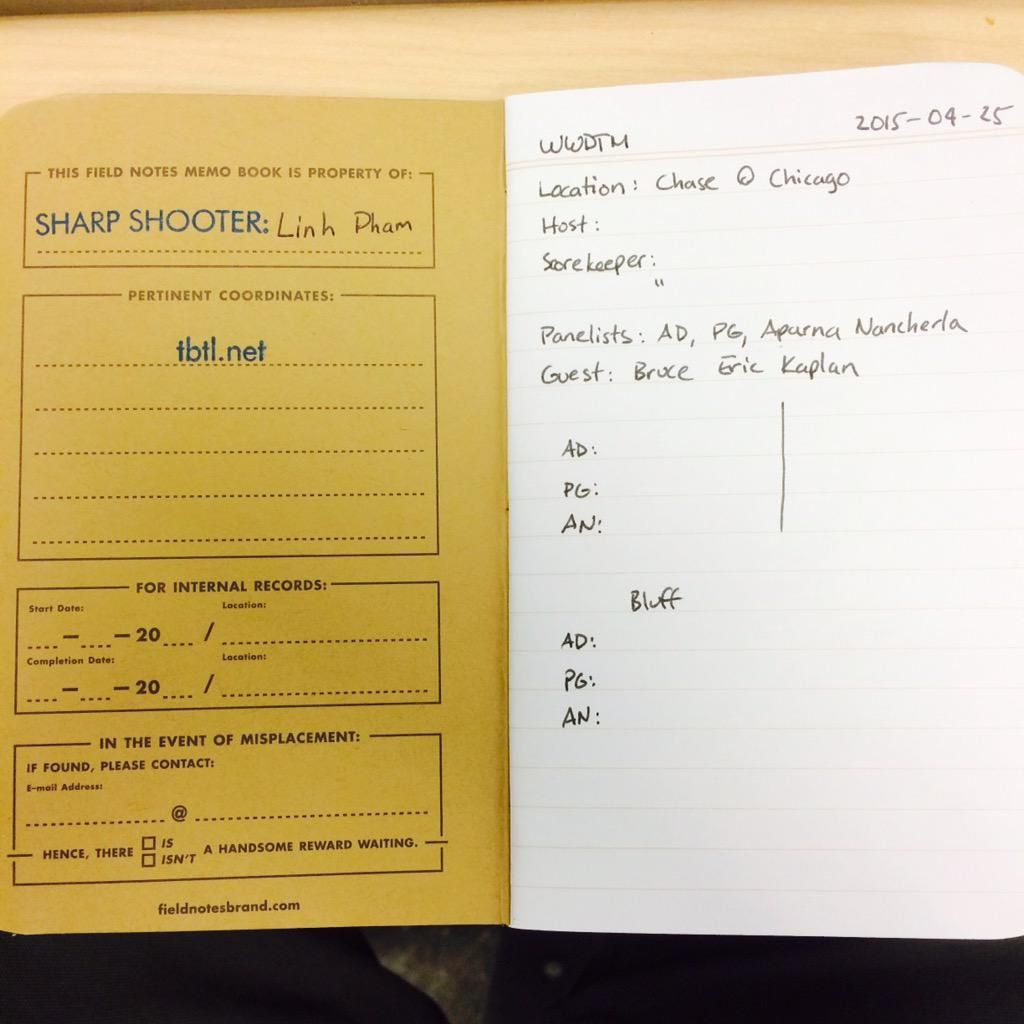 THIS FIELD NOTES MEMO BOOK IS PROPERTY OF:
SHARP SHOOTER: Linh Pham
PERTINENT COORDINATES:
tbtl.net
FOR INTERNAL RECORDS:
Start Date: Location:
— — 20 /
Completion Date: Location:
— — 20 /
IN THE EVENT OF MISPLACEMENT:
IF FOUND, PLEASE CONTACT:
E-mail Address:
@
HENCE, THERE ☐ IS ☐ ISN'T A HANDSOME REWARD WAITING.
fieldnotesbrand.com
2015-04-25
WWDTM
Location: Chase @ Chicago
Host:
Scorekeeper:
"
Panelists: AD, PG, Aparna Nancherla
Guest: Bruce Eric Kaplan
AD:
PG:
AN:
Bluff
AD:
PG:
AN: